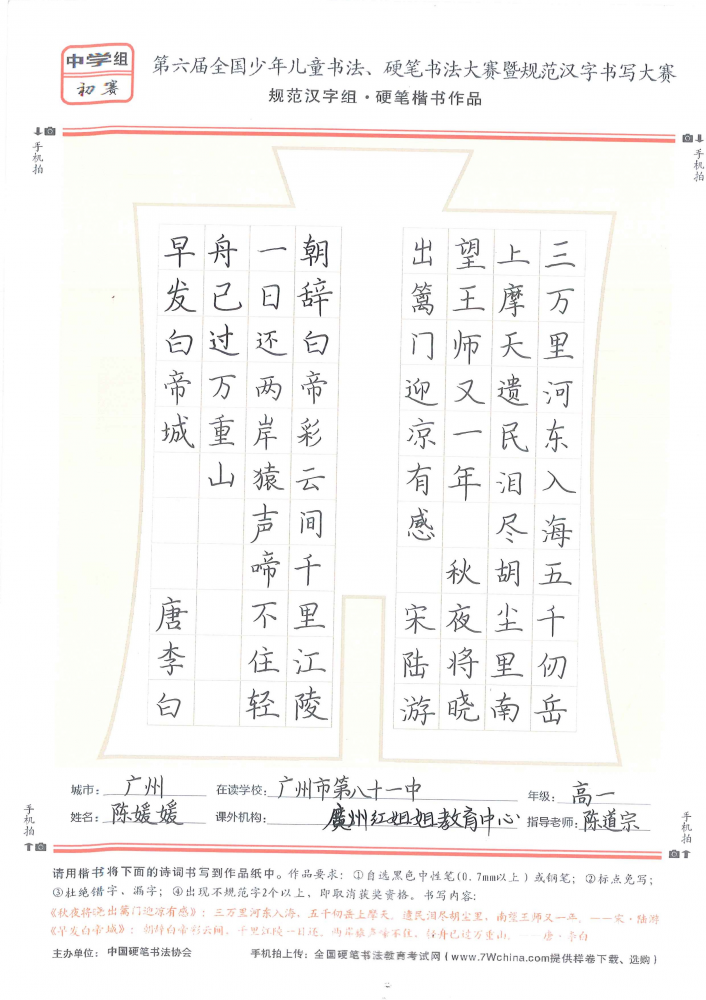 中学组
初赛
第六届全国少年儿童书法、硬笔书法大赛暨规范汉字书写大赛
规范汉字组·硬笔楷书作品
手机拍
手机拍
三万里河东入海五千仞岳
上摩天遗民泪尽胡尘里南
望王师又一年 秋夜将晓
出篱门迎凉有感 宋陆游
朝辞白帝彩云间千里江陵
一日还两岸猿声啼不住轻
舟已过万重山
早发白帝城 唐李白
城市: 广州 在读学校: 广州市第八十一中 年级: 高一
姓名: 陈媛媛 课外机构: 廣州红姐姐教育中心 指导老师: 陈道宗
手机拍
手机拍
请用楷书将下面的诗词书写到作品纸中。作品要求：①自选黑色中性笔(0.7mm以上)或钢笔；②标点免写；
③杜绝错字、漏字；④出现不规范字2个以上，即取消获奖资格。书写内容：
《秋夜将晓出篱门迎凉有感》：三万里河东入海，五千仞岳上摩天。遗民泪尽胡尘里，南望王师又一年。——宋·陆游
《早发白帝城》：朝辞白帝彩云间，千里江陵一日还。两岸猿声啼不住，轻舟已过万重山。——唐·李白
主办单位：中国硬笔书法协会 手机拍上传：全国硬笔书法教育考试网(www.7Wchina.com提供样卷下载、选购)